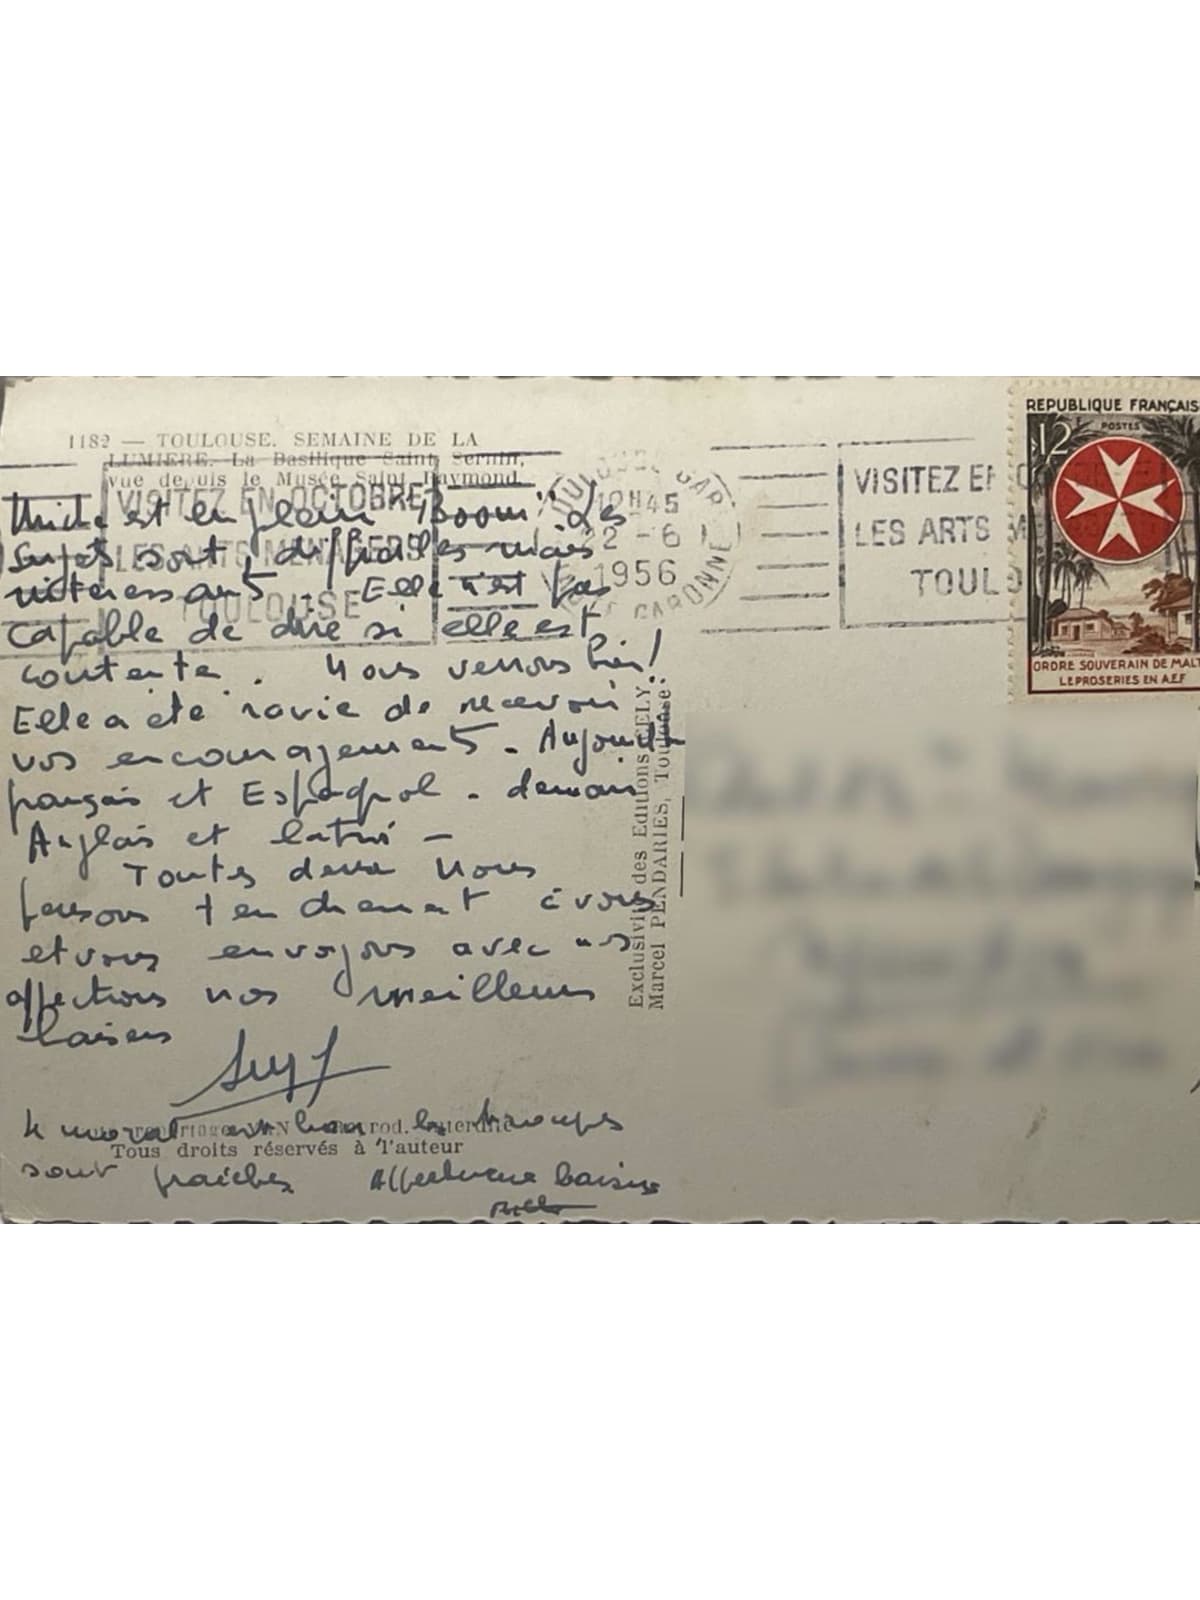 1182 — TOULOUSE. SEMAINE DE LA
LUMIERE. La Basilique Saint Sernin,
vue depuis le Musée Saint Raymond.
VISITEZ EN OCTOBRE
LES ARTS MENAGERS
TOULOUSE
TOULOUSE GAR
12H45
22-6
1956
GARONNE
VISITEZ EN
LES ARTS M
TOULO
REPUBLIQUE FRANÇAIS
POSTES
12F
ORDRE SOUVERAIN DE MALT
LEPROSERIES EN A.E.F
est en plein "Boom". Les
sujets sont difficiles mais
intéressants. Elle n'est pas
capable de dire si elle est
contente. Nous verrons bien!
Elle a été ravie de recevoir
vos encouragements. Aujourd'hui
français et Espagnol. demain
Anglais et latin —
Toutes deux nous
pensons tendrement à vous
et vous envoyons avec nos
affections nos meilleurs
baisers
moral est bon les troupes
sont fraîches Affectueux baisers
Exclusivité des Editions CELY
Marcel PENDARIES, Toulouse.
rod. interdite
Tous droits réservés à l'auteur